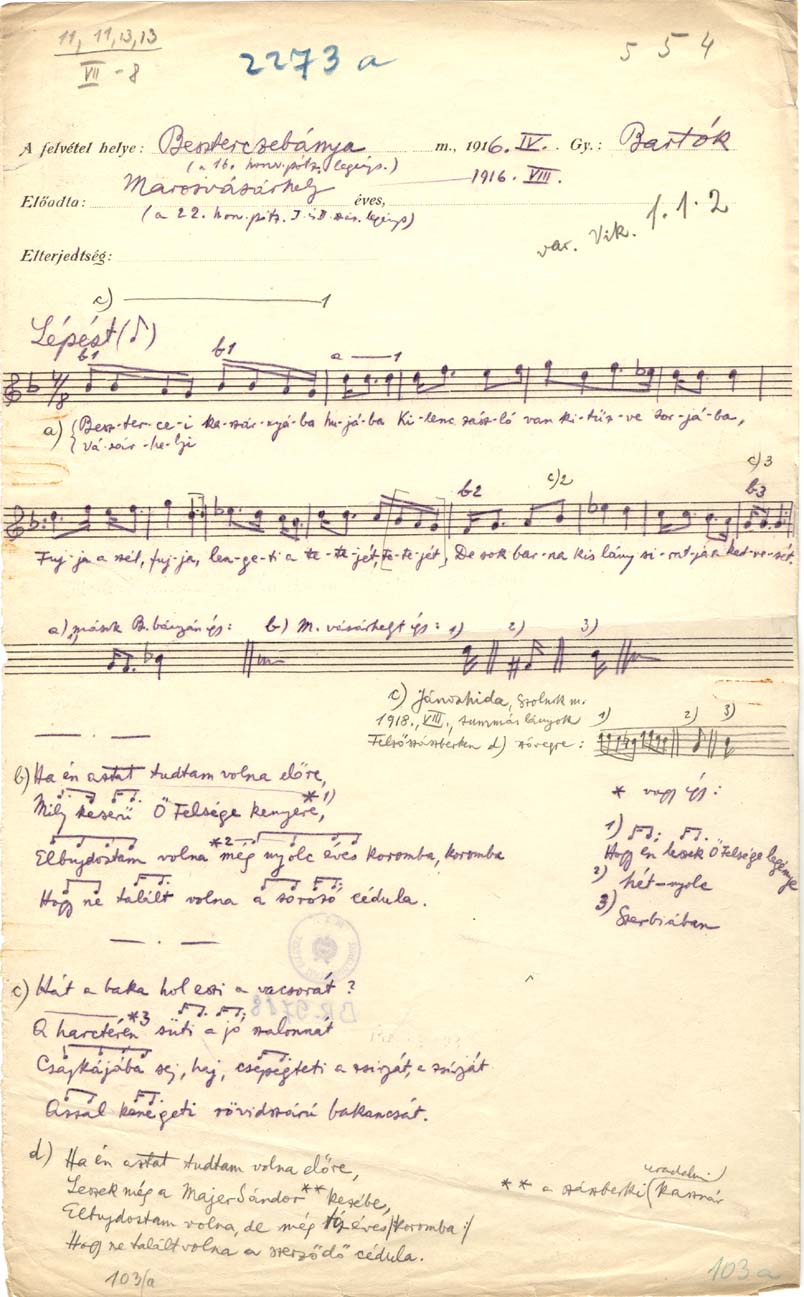 11, 11, 13, 13
VII - 8
2273 a
5 5 4
A felvétel helye: Besztercebánya m., 1916. IV. Gy.: Bartók
(a 16. honv. pótz. legénys.)
Marosvásárhely 1916. VIII.
Előadta: éves,
(a 22. hon. pótz. I. és II. száz. legénys.)
var. Vik. 1.1.2
Elterjedtség:
c) 1
Lépést (♪)
b1 b1 a 1
4/8
a) Besz-ter-ce-i ka-szár-nyá-ba hu-já-ba Ki-lenc zász-ló van ki-tűz-ve sor-já-ba,
Vá-sár-he-lyi
b2 c)2 c)3 b3
Fuj-ja a szél, fuj-ja, len-ge-ti a te-te-jét, te-te-jét, De sok bar-na kis lány si-rat-ja a ked-ve-sét.
a) mások B. bányán így: b) M. vásárhelyt így: 1) 2) 3)
c) Jánoshida, Szolnok m.
1918. VIII., summás lányok 1) 2) 3)
Felsőszászberken d) szövegre:
b) Ha én aztat tudtam volna előre,
Mily keserű Ő Felsége kenyere, *1)
Elbujdostam volna *2 még nyolc éves koromba, koromba
Hogy ne talált volna a sorozó cédula.
* vagy így:
1)
Hogy én leszek Ő Felsége legénye
2) hét-nyolc
3) Szerbiában
c) Hát a baka hol eszi a vacsorát?
A harctéren *3 süti a jó szalonnát
Csajkájába sej, haj, csepegteti a zsirját, a zsirját
Azzal kenegeti rövidszárú bakancsát.
d) Ha én aztat tudtam volna előre,
Leszek még a Majer Sándor ** kezébe,
Elbujdostam volna, de még tíz éves /: koromba :/
Hogy ne talált volna a szerződő cédula.
** a szászberki (uradalmi) kasznár
103/a
103 a